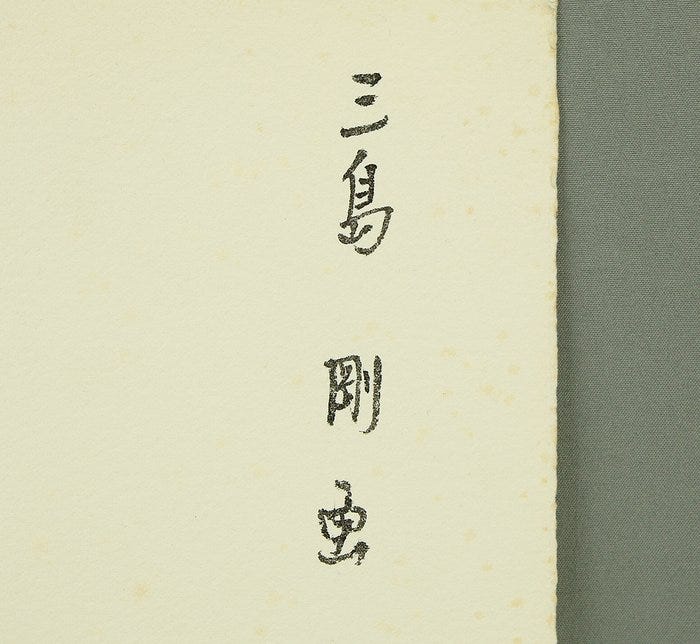 三島 剛画